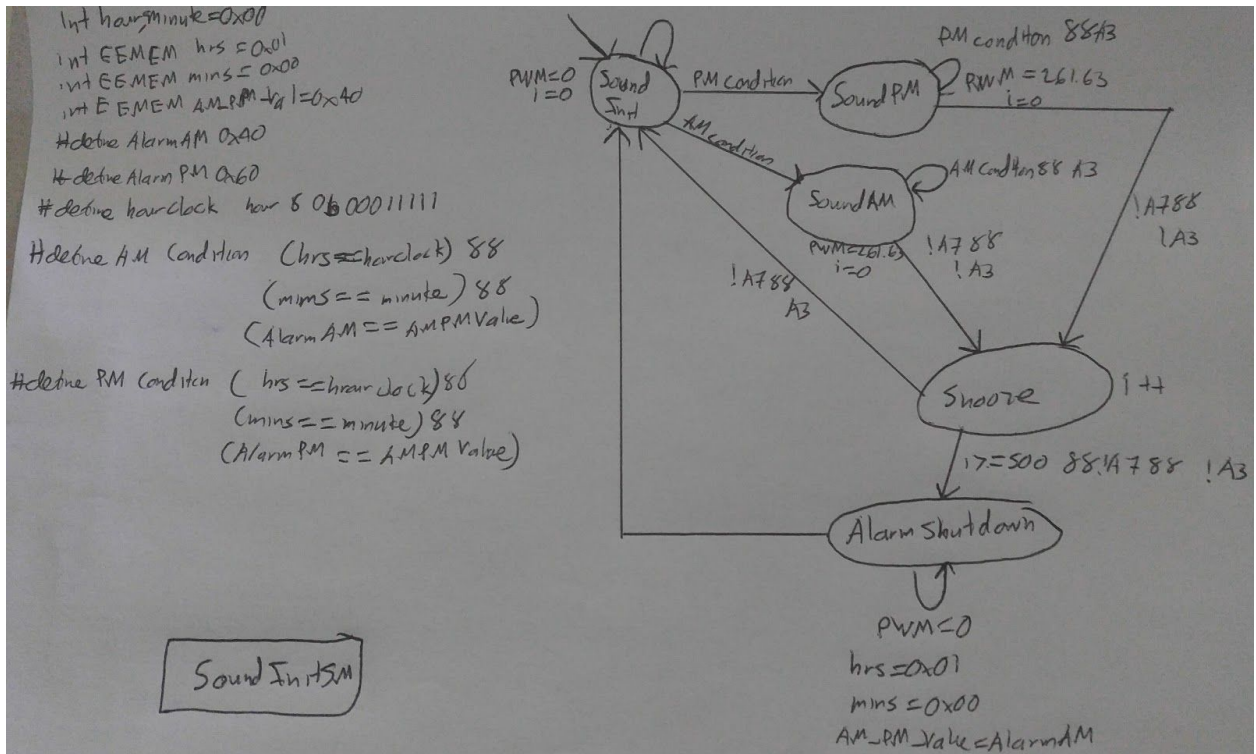 Int hour,minute=0x00
int EEMEM hrs = 0x01
int EEMEM mins = 0x00
int EEMEM AM_PM_Val=0x40
#define AlarmAM 0x40
#define AlarmPM 0x60
#define hourclock hour & 0b00011111
#define AM Condition (hrs==hourclock) &&
(mins == minute) &&
(AlarmAM == AMPMValue)
#define PM Condition (hrs==hrourclock) &&
(mins == minute) &&
(AlarmPM == AMPM Value)
SoundInitSM
PWM=0
i=0
Sound
Init
PM condition
SoundPM
PM condition &&A3
PWM = 261.63
i=0
AM condition
SoundAM
AM Condition && A3
PWM=261.63
i=0
!A7 &&
!A3
!A7 &&
!A3
!A7 &&
A3
Snooze
i++
i>=500 && !A7 && !A3
Alarm Shutdown
PWM=0
hrs=0x01
mins = 0x00
AM_PM_Value=AlarmAM